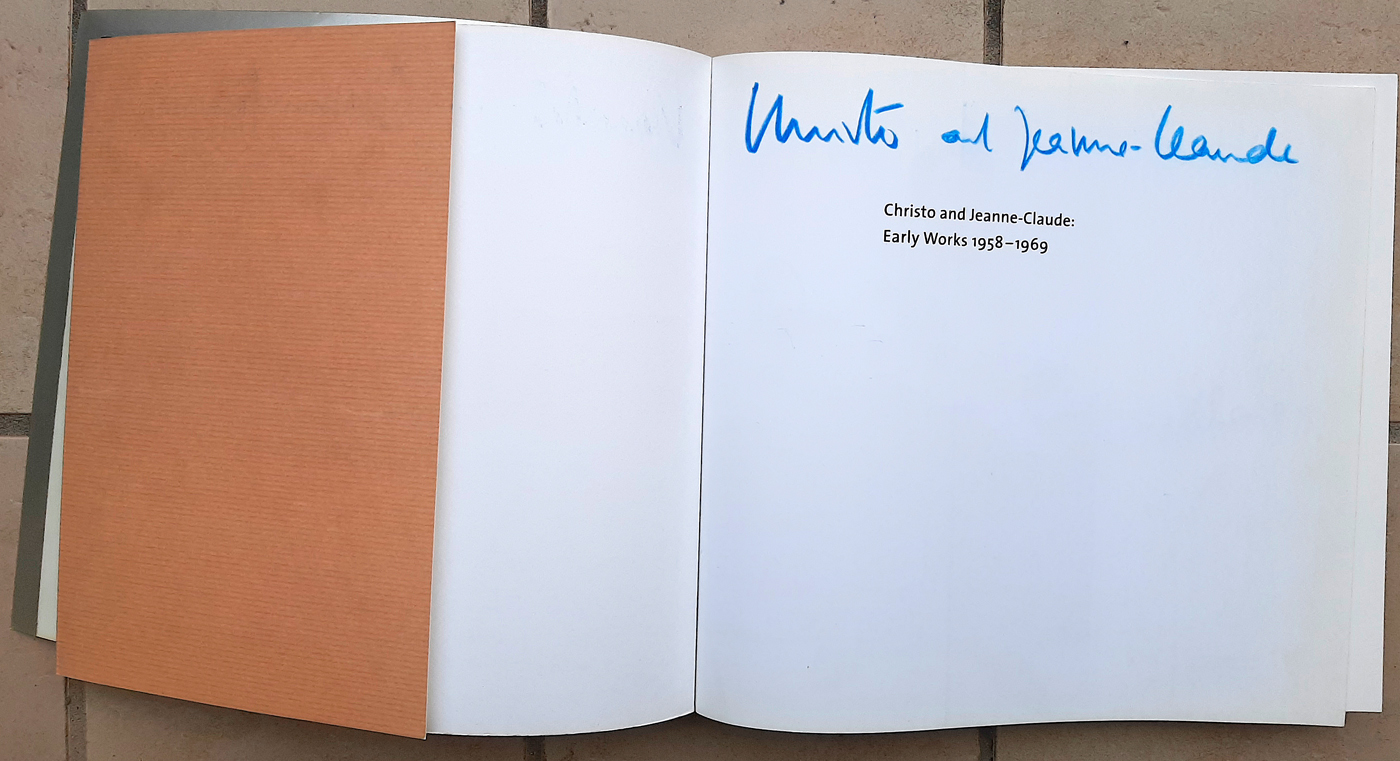 Christo and Jeanne-Claude
Christo and Jeanne-Claude:
Early Works 1958–1969